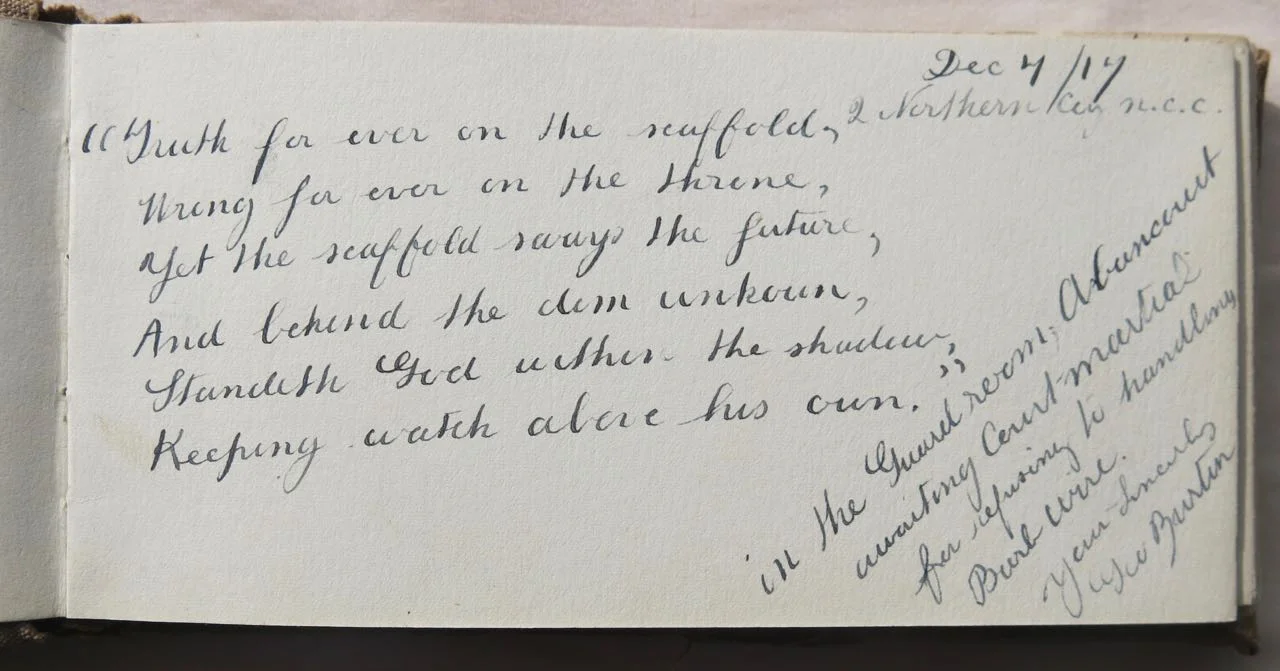 Dec 7/17
2 Northern Coy N.C.C.
"Truth for ever on the scaffold,
Wrong for ever on the throne,
Yet the scaffold sways the future,
And behind the dim unkoun,
Standeth God within the shadow,
Keeping watch above his own."
in the Guard room, Abancourt
awaiting Court martial
for refusing to handling
Barb wire.
Your Sincerly
Burtin